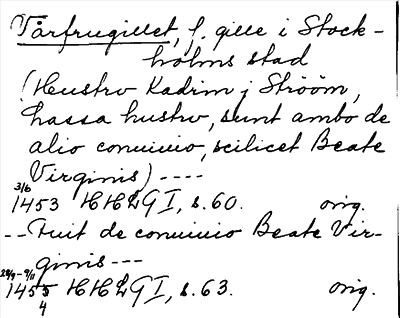 Vårfrugillet, f. gille i Stock-
holms stad
(Hustrv Kadrin j Strööm,
hassa hustrv, sunt ambo de
alio conuiuio, scilicet Beate
Virginis) ----
3/6
1453 HHLG I, s. 60. orig.
-- Fuit de conuiuio Beate Vir-
ginis ---
29/9-9/11
1455 HHLG I, s. 63. orig.
4